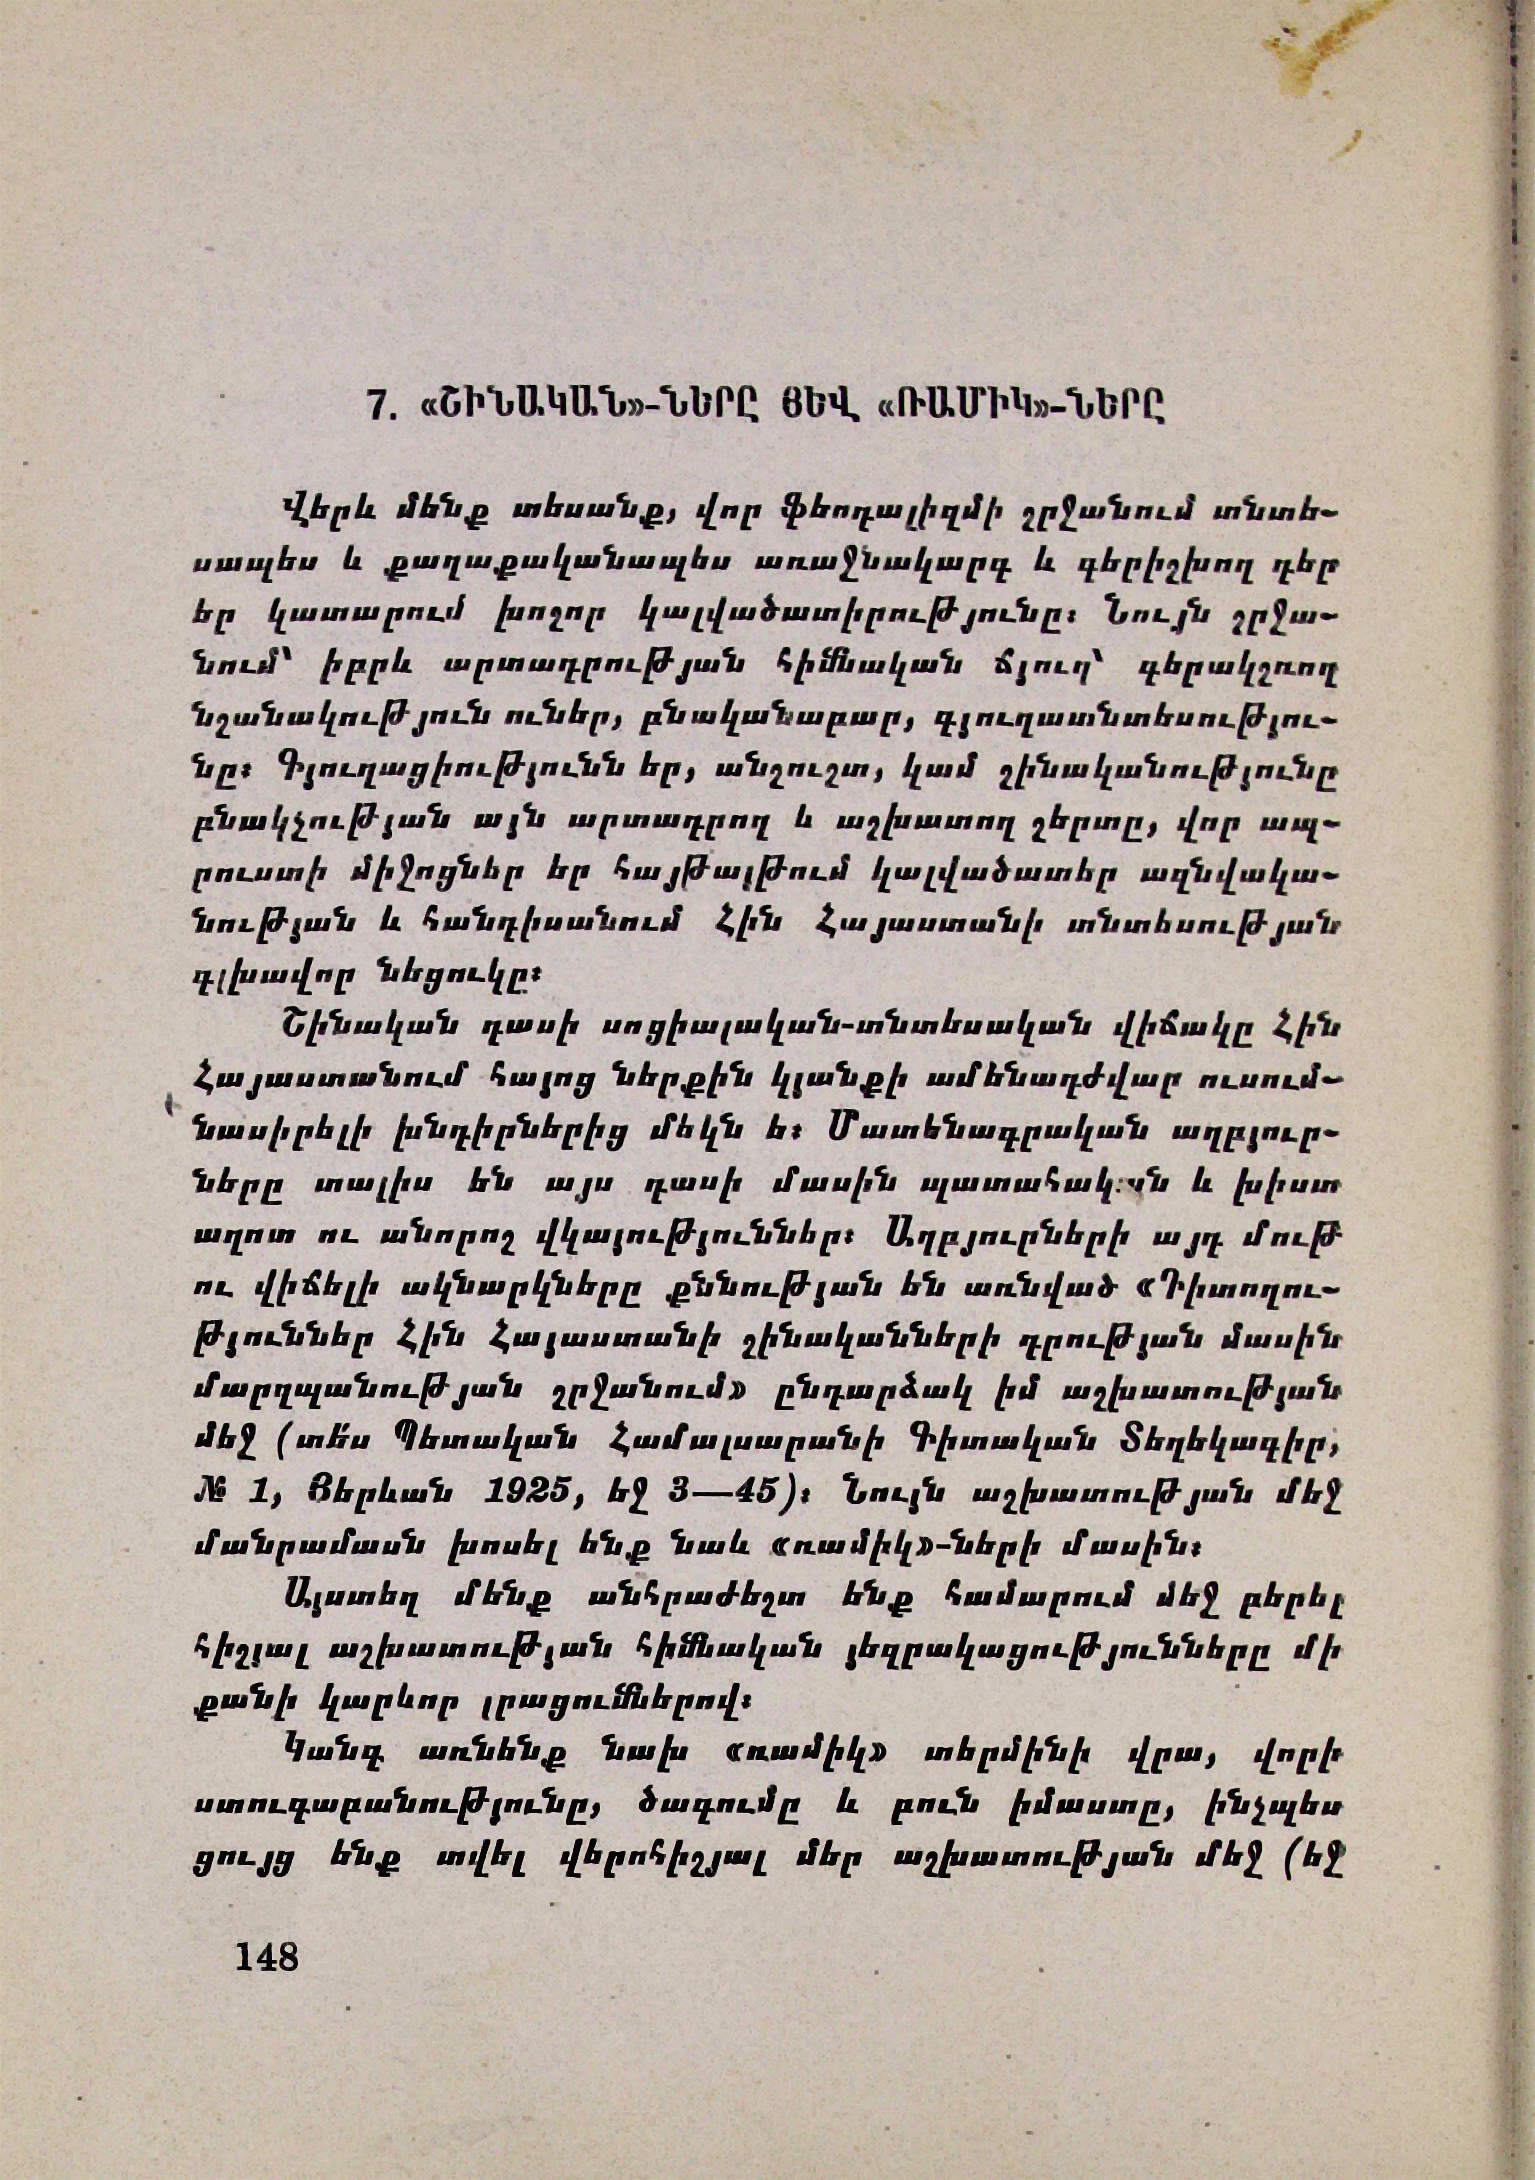 7. «ՇԻՆԱԿԱՆ»-ՆԵՐԸ ՅԵՎ «ՌԱՄԻԿ»-ՆԵՐԸ
Վերև մենք տեսանք, վոր ֆեոդալիզմի շրջանում տնտե-
սապես և քաղաքականապես առաջնակարգ և գերիշխող դեր
եր կատարում խոշոր կալվածատիրությունը։ Նույն շրջա-
նում՝ իբրև արտադրության հիմնական ճյուղ՝ գերակշռող
նշանակություն ուներ, բնականաբար, գյուղատնտեսությու-
նը։ Գյուղացիությունն եր, անշուշտ, կամ շինականությունը
բնակչության այն արտադրող և աշխատող շերտը, վոր ապ-
րուստի միջոցներ եր հայթայթում կալվածատեր ազնվակա-
նության և հանդիսանում Հին Հայաստանի տնտեսության
գլխավոր նեցուկը։
Շինական դասի սոցիալական-տնտեսական վիճակը Հին
Հայաստանում հայոց ներքին կյանքի ամենադժվար ուսում-
նասիրելի խնդիրներից մեկն ե։ Մատենագրական աղբյուր-
ները տալիս են այս դասի մասին պատահական և խիստ
աղոտ ու անորոշ վկայություններ։ Աղբյուրների այդ մութ
ու վիճելի ակնարկները քննության են առնված «Դիտողու-
թյուններ Հին Հայաստանի շինականների դրության մասին
մարզպանության շրջանում» ընդարձակ իմ աշխատության
մեջ (տե՛ս Պետական Համալսարանի Գիտական Տեղեկագիր,
№ 1, Յերևան 1925, եջ 3—45)։ Նույն աշխատության մեջ
մանրամասն խոսել ենք նաև «ռամիկ»-ների մասին։
Այստեղ մենք անհրաժեշտ ենք համարում մեջ բերել
հիշյալ աշխատության հիմնական յեզրակացությունները մի
քանի կարևոր լրացումներով։
Կանգ առնենք նախ «ռամիկ» տերմինի վրա, վորի
ստուգաբանությունը, ծագումը և բուն իմաստը, ինչպես
ցույց ենք տվել վերոհիշյալ մեր աշխատության մեջ (եջ
148